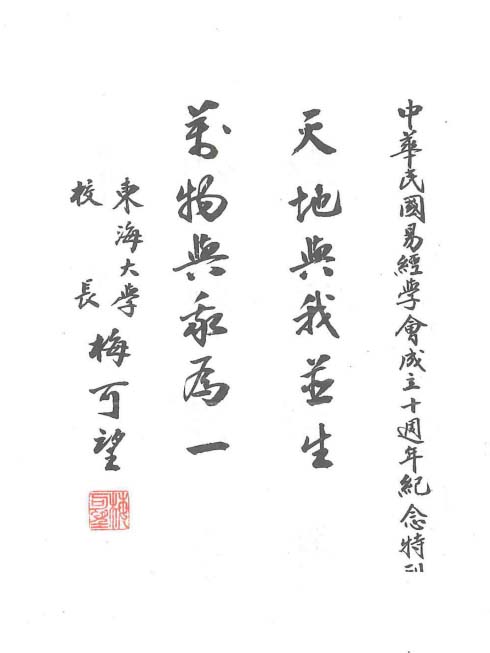 中華民國易經學會成立十週年紀念特刊
天地與我並生
萬物與我為一
東海大學
校長
梅可望
梅可望